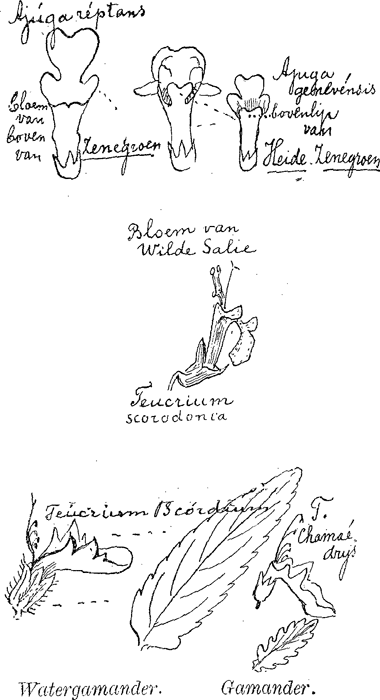 Ajúga réptans
Bloem
van
boven
van Zenegroen
Ajuga
genevénsis
bovenlip
van
Heide-Zenegroen
Bloem van
Wilde Salie
Teucrium
scorodonia
Teucrium Scórdium
T.
Chamaé-
drys
Watergamander.
Gamander.